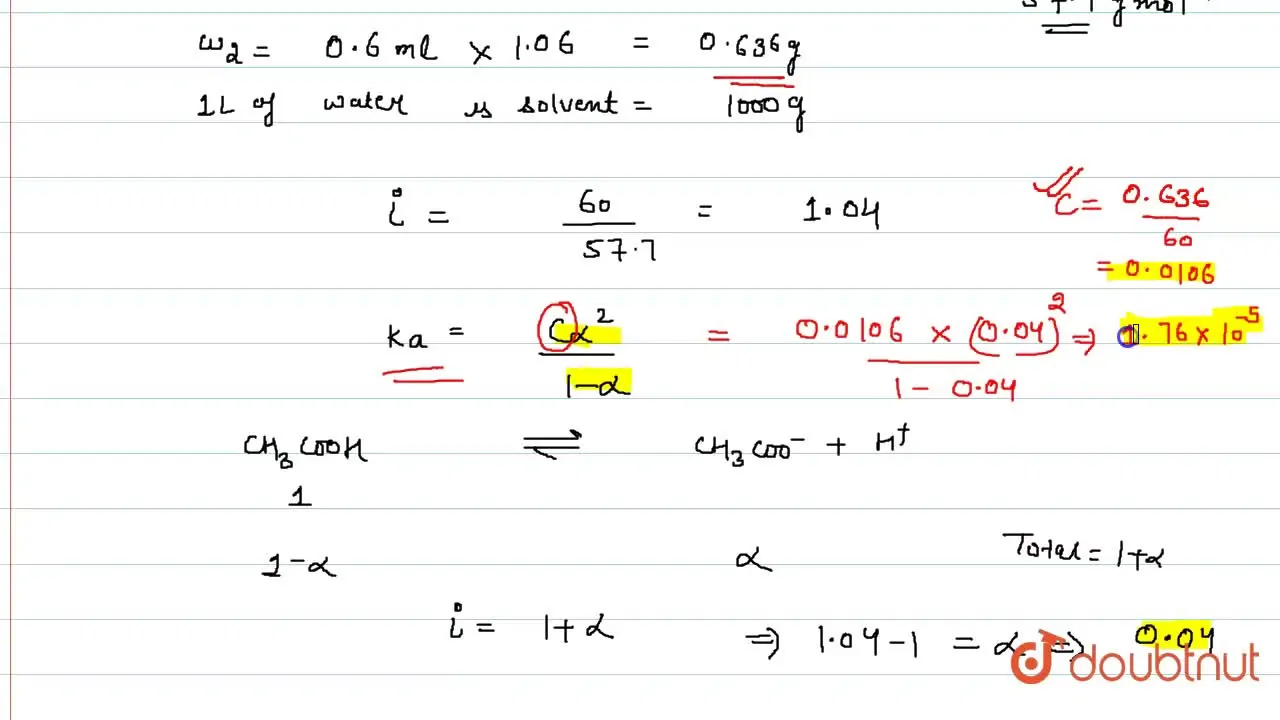 w₂ = 0.6 ml × 1.06 = 0.636g
1L of water is solvent = 1000g
i = 60/57.7 = 1.04
C = 0.636/60
= 0.0106
ka = Cα²/1-α = 0.0106 × (0.04)²/1 - 0.04 ⇒ 1.76 × 10⁻⁵
CH₃COOH ⇌ CH₃COO⁻ + H⁺
1
1-α α Total = 1+α
i = 1+α ⇒ 1.04-1 = α ⇒ 0.04
doubtnut